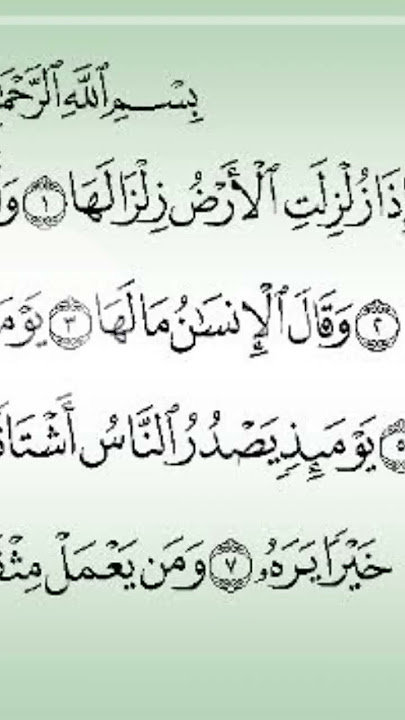 بِسْمِ ٱللَّهِ ٱلرَّحْمَ
إِذَا زُلْزِلَتِ ٱلْأَرْضُ زِلْزَالَهَا ۝١ وَ
۝٢ وَقَالَ ٱلْإِنسَـٰنُ مَا لَهَا ۝٣ يَوْمَ
۝٥ يَوْمَئِذٍ يَصْدُرُ ٱلنَّاسُ أَشْتَاتً
خَيْرًا يَرَهُۥ ۝٧ وَمَن يَعْمَلْ مِثْقَ